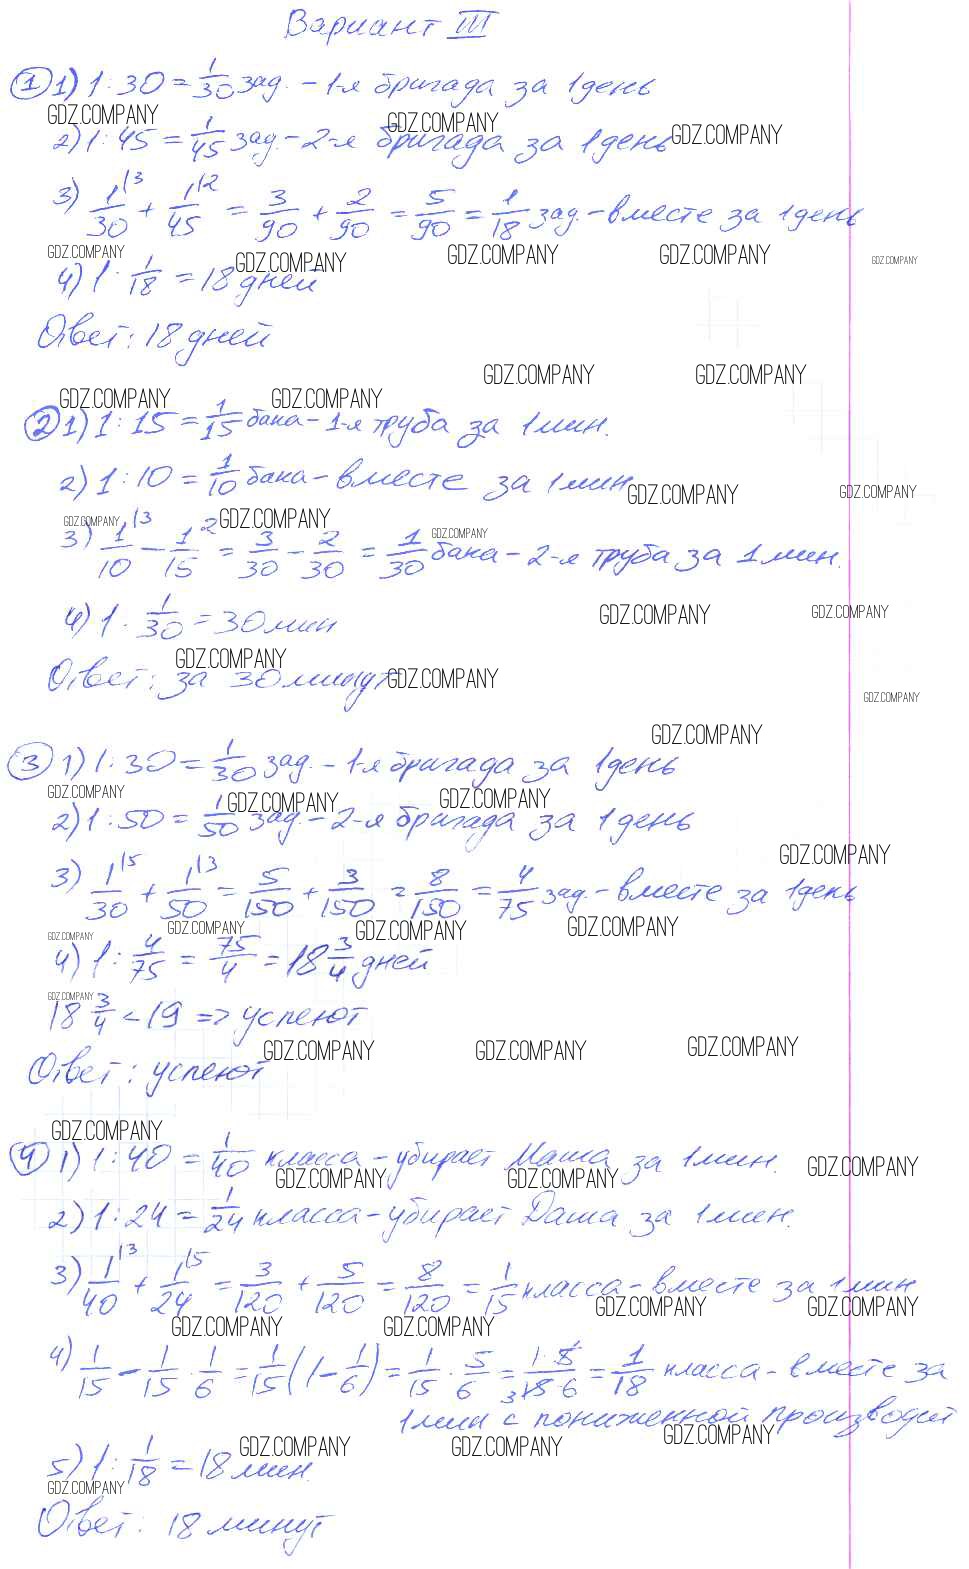 Вариант III
① 1) 1 : 30 = 1/30 зад. - 1-я бригада за 1 день
GDZ.COMPANY GDZ.COMPANY GDZ.COMPANY
2) 1 : 45 = 1/45 зад. - 2-я бригада за 1 день
3) 1/30 \3 + 1/45 \2 = 3/90 + 2/90 = 5/90 = 1/18 зад. - вместе за 1 день
GDZ.COMPANY GDZ.COMPANY GDZ.COMPANY GDZ.COMPANY GDZ.COMPANY
4) 1 : 1/18 = 18 дней
Ответ: 18 дней
GDZ.COMPANY GDZ.COMPANY
GDZ.COMPANY GDZ.COMPANY
② 1) 1 : 15 = 1/15 бака - 1-я труба за 1 мин.
2) 1 : 10 = 1/10 бака - вместе за 1 мин
GDZ.COMPANY GDZ.COMPANY
GDZ.COMPANY GDZ.COMPANY GDZ.COMPANY
3) 1/10 \3 - 1/15 \2 = 3/30 - 2/30 = 1/30 бака - 2-я труба за 1 мин.
GDZ.COMPANY GDZ.COMPANY
4) 1 : 1/30 = 30 мин
GDZ.COMPANY GDZ.COMPANY
Ответ: за 30 минут
GDZ.COMPANY
GDZ.COMPANY
③ 1) 1 : 30 = 1/30 зад. - 1-я бригада за 1 день
GDZ.COMPANY GDZ.COMPANY GDZ.COMPANY
2) 1 : 50 = 1/50 зад. - 2-я бригада за 1 день
GDZ.COMPANY
3) 1/30 \5 + 1/50 \3 = 5/150 + 3/150 = 8/150 = 4/75 зад. - вместе за 1 день
GDZ.COMPANY GDZ.COMPANY GDZ.COMPANY GDZ.COMPANY
4) 1 : 4/75 = 75/4 = 18 3/4 дней
GDZ.COMPANY
18 3/4 < 19 => успеют
GDZ.COMPANY GDZ.COMPANY GDZ.COMPANY
Ответ: успеют
GDZ.COMPANY
④ 1) 1 : 40 = 1/40 класса - убирает Маша за 1 мин.
GDZ.COMPANY GDZ.COMPANY GDZ.COMPANY
2) 1 : 24 = 1/24 класса - убирает Даша за 1 мин.
3) 1/40 \3 + 1/24 \5 = 3/120 + 5/120 = 8/120 = 1/15 класса - вместе за 1 мин
GDZ.COMPANY GDZ.COMPANY
GDZ.COMPANY GDZ.COMPANY
4) 1/15 - 1/15 · 1/6 = 1/15 (1 - 1/6) = 1/15 · 5/6 = 1·5/15·6 = 1/18 класса - вместе за
1 мин с пониженной производит
GDZ.COMPANY GDZ.COMPANY GDZ.COMPANY
5) 1 : 1/18 = 18 мин.
GDZ.COMPANY
Ответ: 18 минут